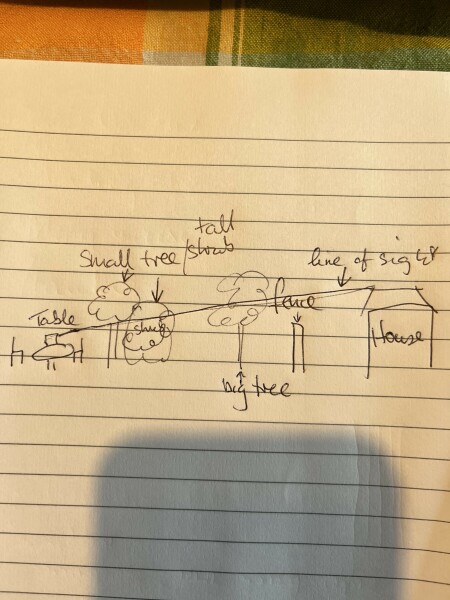 tall
Small tree/shrub
line of sight
fence
Table
shrub
House
big tree